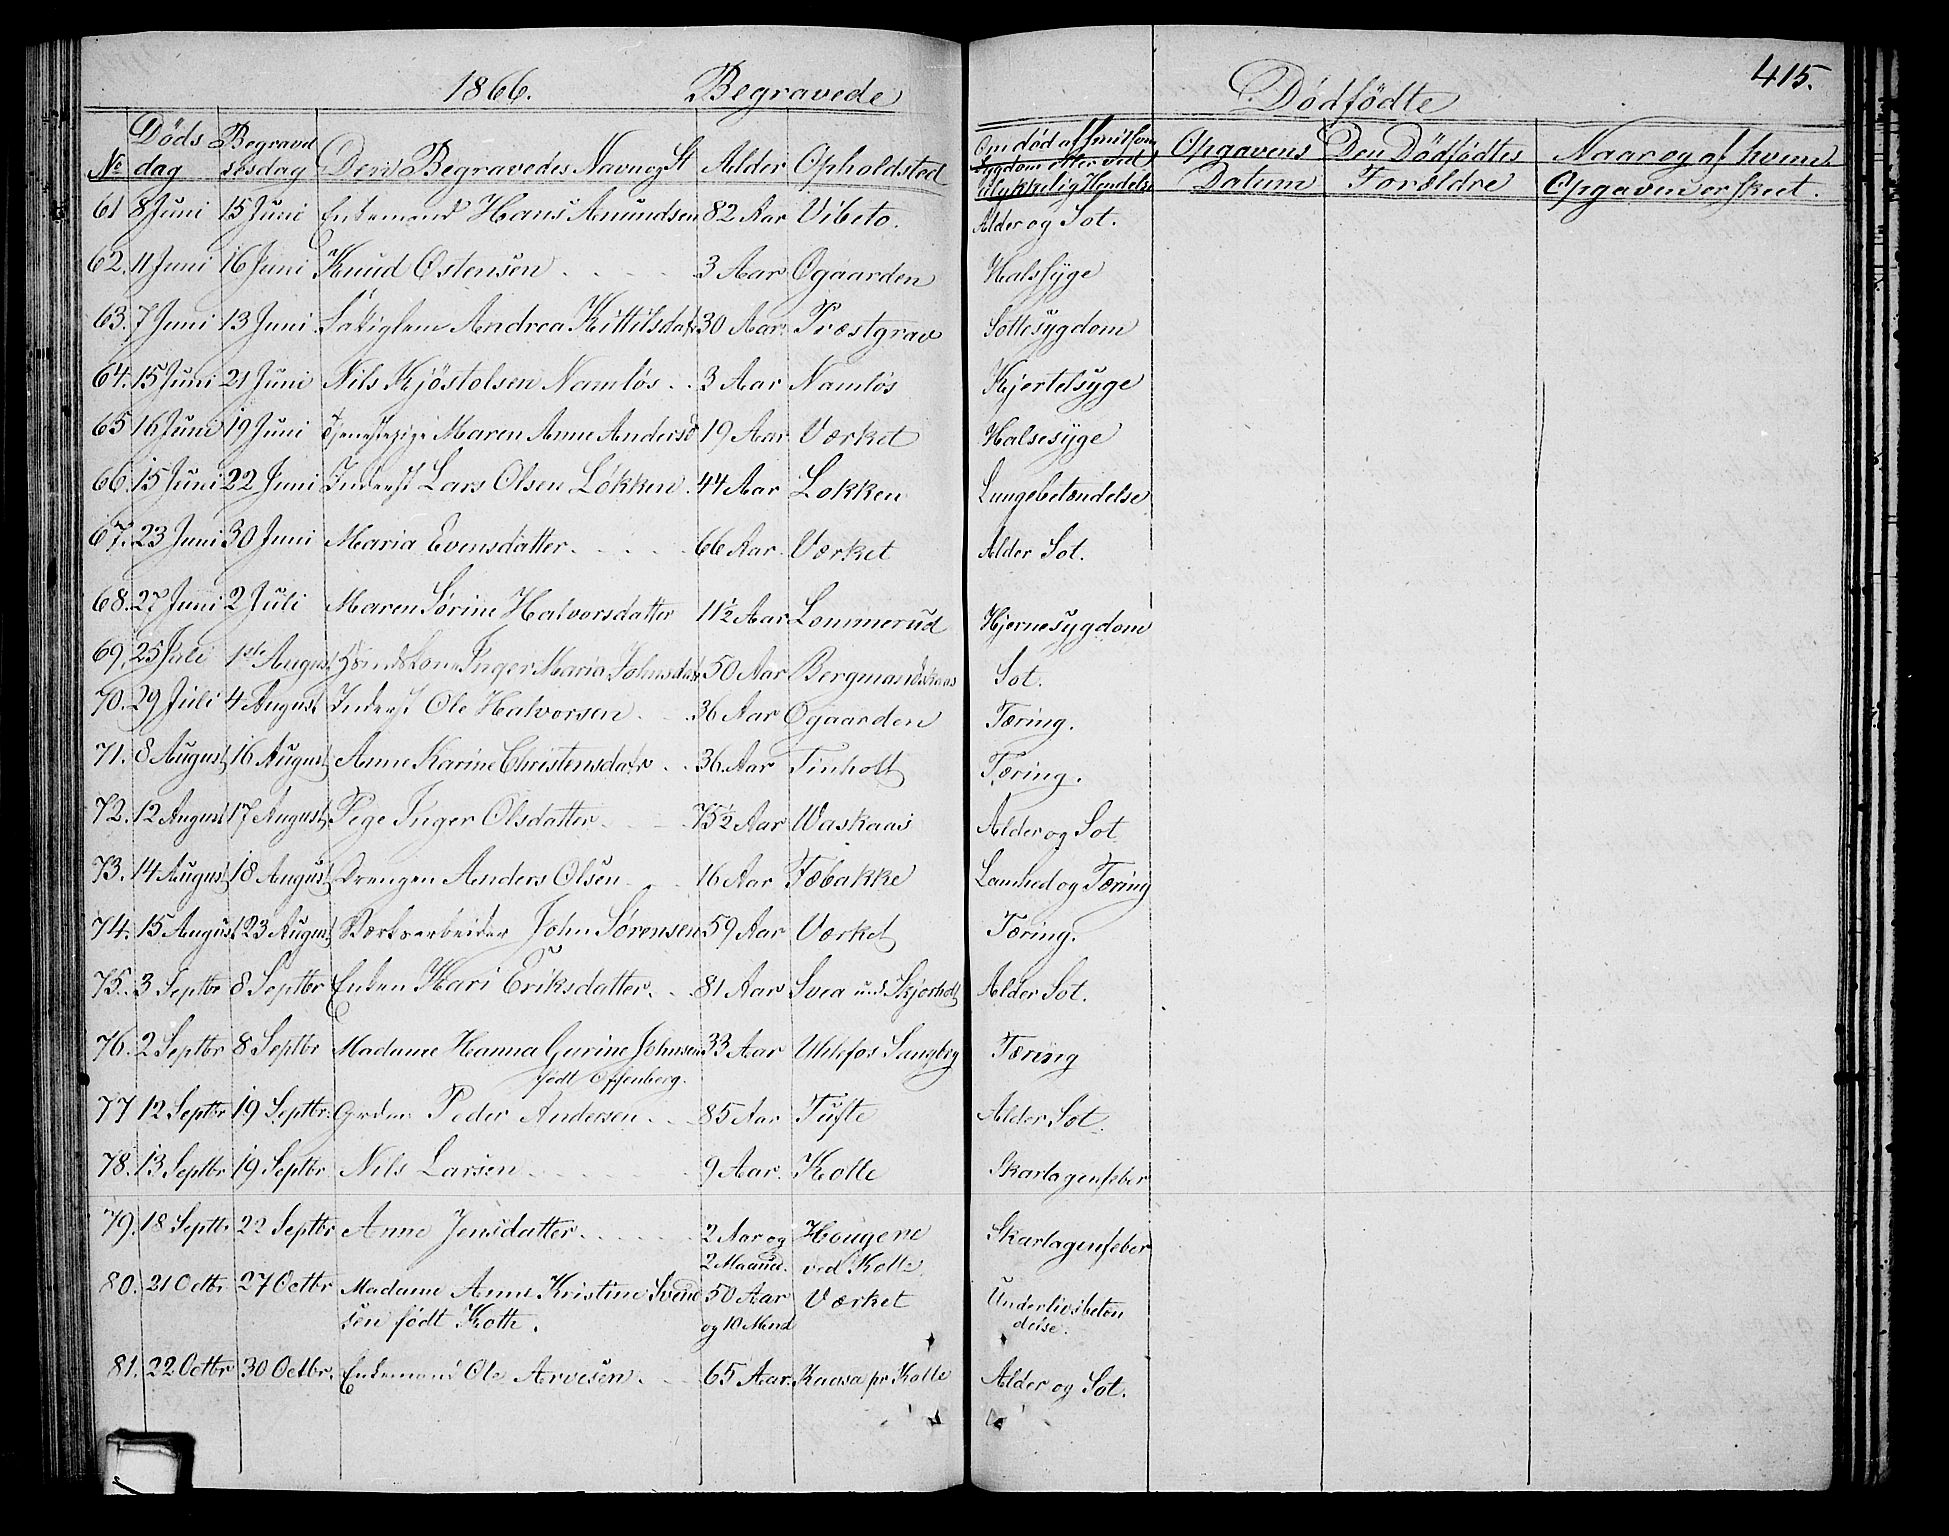 1866. Begravede
Dødfødte 415.
No Døds dag Begravelsesdag Den Begravedes Navn og St Alder Opholdsted Om død af smitsom Sygdom eller ved ulykkelig Hendelse Opgavens Datum Den Dödfödtes Forældre Naar og af hvem Opgaven er skeet.
61 8 Juni 15 Juni Enkemand Hans Amundsen 82 Aar Vibeto. Alder og Sot.
62. 11 Juni 16 Juni Knud Østensen 3 Aar Ogaarden Halssyge
63. 7 Juni 13 Juni Andrea Kittilsdatr 30 Aar Præstgrav Sottesygdom
64. 15 Juni 21 Juni Nils Kjöstolsen Namløs 3 Aar Namløs Kjertelsyge
65 16 Juni 19 Juni Tjenestepige Maren Anne Andersd 19 Aar Værket Halsesyge
66. 15 Juni 22 Juni Inderst Lars Olsen Løkken. 44 Aar Lokken Lungebetændelse
67. 23 Juni 30 Juni Maria Evensdatter 66 Aar Værket Alder Sot.
68. 27 Juni 2 Juli Maren Sørine Halvorsdatter 11½ Aar Lommerud Hjernesygdom
69. 25 Juli 1ste August Inger Maria Johnsdatr 50 Aar Bergmandskaas Sot.
70. 29 Juli 4 August Inderst Ole Halvorsen 36 Aar Ogaarden Tæring.
71. 8 August 16 August Anne Karine Christensdatr 36 Aar Finholt Tæring.
72. 12 August 17 August Pege Inger Olsdatter 75½ Aar Waskaas Alder og Sot
73. 14 August 18 August Drengen Anders Olsen 16 Aar Fæbakke Lamhed og Tæring
74. 15 August 23 August Værksarbeider John Sørensen 59 Aar Værket Tæring.
75. 3 Septbr 8 Septbr Enken Kari Eriksdatter. 81 Aar Svea und Skjerholt Alder Sot.
76. 2 Septbr 8 Septbr Madame Hanna Gurine Johnsen 33 Aar Ulefos Tæring
født Offenberg.
77 12 Septbr 19 Septbr. Grdm: Peder Andersen 85 Aar Tufte Alder Sot.
78. 13 Septbr 19 Septbr Nils Larsen 9 Aar. Kolte Skarlagenfeber
79. 18 Septbr 22 Septbr Anne Jensdatter 2 Aar og Hougene Skarlagenfeber
2 Maaned. ved Kolte
80. 21 Octbr 27 Octbr Madame Anne Kristine Svend 50 Aar Værket Underlivsbetæn
sen født Koth. og 10 Mnd delse.
81. 22 Octbr 30 Octbr. Enkemand Ole Arvesen. 65 Aar. Kaasa pr Kolte Alder og Sot.